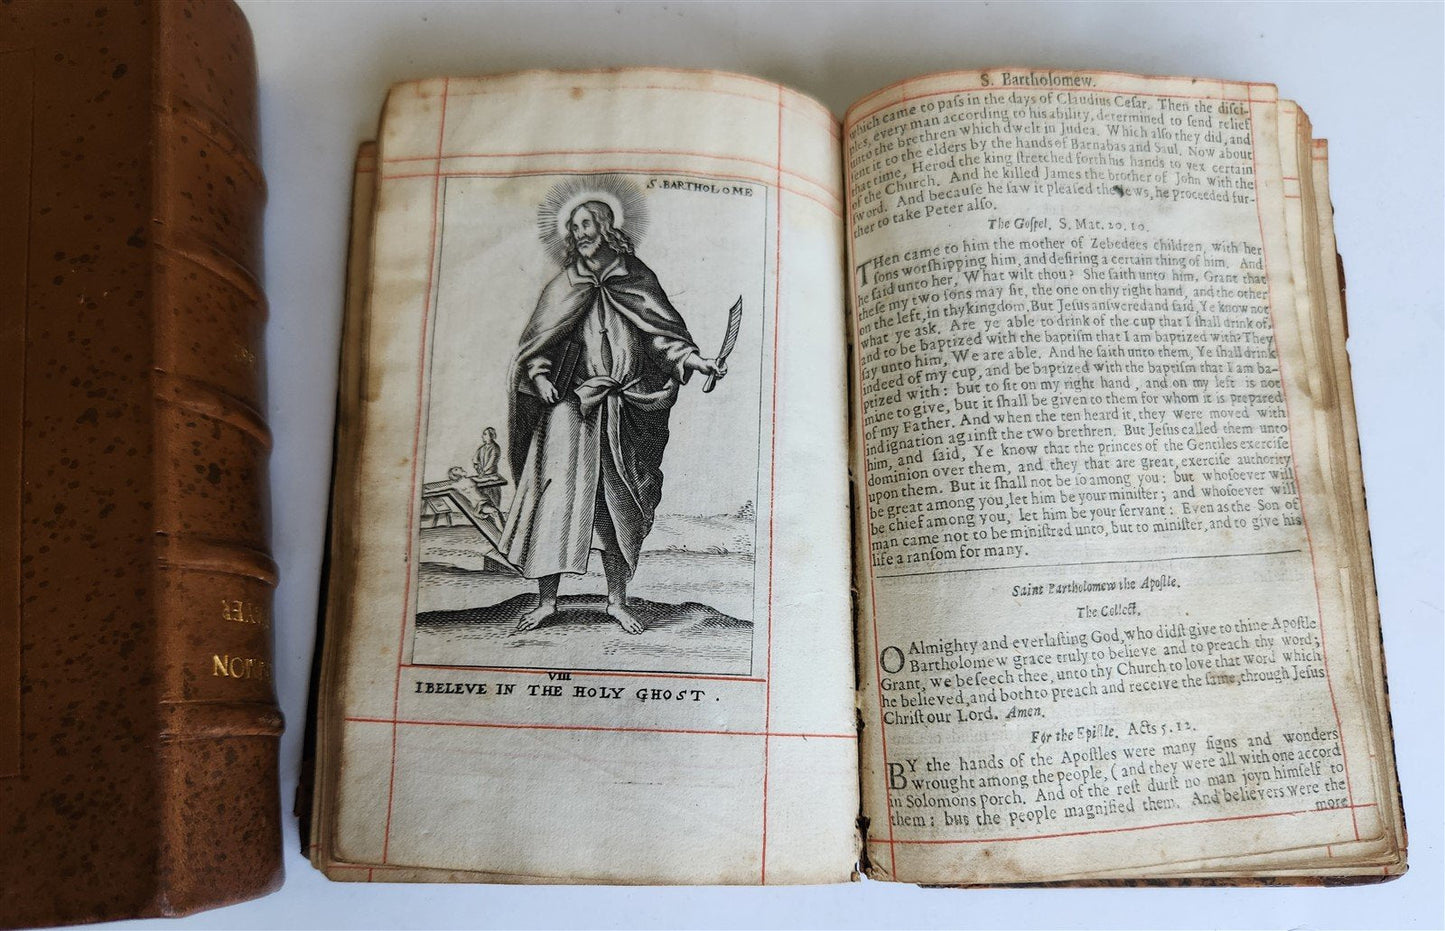 S. BARTHOLOME
VIII
I BELEVE IN THE HOLY GHOST.
S. Bartholomew.
which came to paſs in the days of Claudius Ceſar. Then the diſci-
ples, every man according to his ability, determined to ſend relief
unto the brethren which dwelt in Judea. Which alſo they did, and
ſent it to the elders by the hands of Barnabas and Saul. Now about
that time, Herod the king ſtretched forth his hands to vex certain
of the Church. And he killed James the brother of John with the
ſword. And becauſe he ſaw it pleaſed the Jews, he proceeded fur-
ther to take Peter alſo.
The Goſpel. S. Mat. 20. 20.
THen came to him the mother of Zebedees children, with her
ſons worſhipping him, and deſiring a certain thing of him. And
he ſaid unto her, What wilt thou? She ſaith unto him, Grant that
theſe my two ſons may ſit, the one on thy right hand, and the other
on the left, in thy kingdom. But Jeſus anſwered and ſaid, Ye know not
what ye ask. Are ye able to drink of the cup that I ſhall drink of,
and to be baptized with the baptiſm that I am baptized with? They
ſay unto him, We are able. And he ſaith unto them, Ye ſhall drink
indeed of my cup, and be baptized with the baptiſm that I am ba-
ptized with: but to ſit on my right hand, and on my left is not
mine to give, but it ſhall be given to them for whom it is prepared
of my Father. And when the ten heard it, they were moved with
indignation againſt the two brethren. But Jeſus called them unto
him, and ſaid, Ye know that the princes of the Gentiles exerciſe
dominion over them, and they that are great, exerciſe authority
upon them. But it ſhall not be ſo among you: but whoſoever will
be great among you, let him be your miniſter; and whoſoever will
be chief among you, let him be your ſervant: Even as the Son of
man came not to be miniſtred unto, but to miniſter, and to give his
life a ranſom for many.
Saint Bartholomew the Apoſtle.
The Collect.
O Almighty and everlaſting God, who didſt give to thine Apoſtle
Bartholomew grace truly to believe and to preach thy word;
Grant, we beſeech thee, unto thy Church to love that word which
he believed, and both to preach and receive the ſame, through Jeſus
Chriſt our Lord. Amen.
For the Epiſtle. Acts 5. 12.
BY the hands of the Apoſtles were many ſigns and wonders
wrought among the people, (and they were all with one accord
in Solomons porch. And of the reſt durſt no man joyn himſelf to
them: but the people magnified them. And believers were the
more